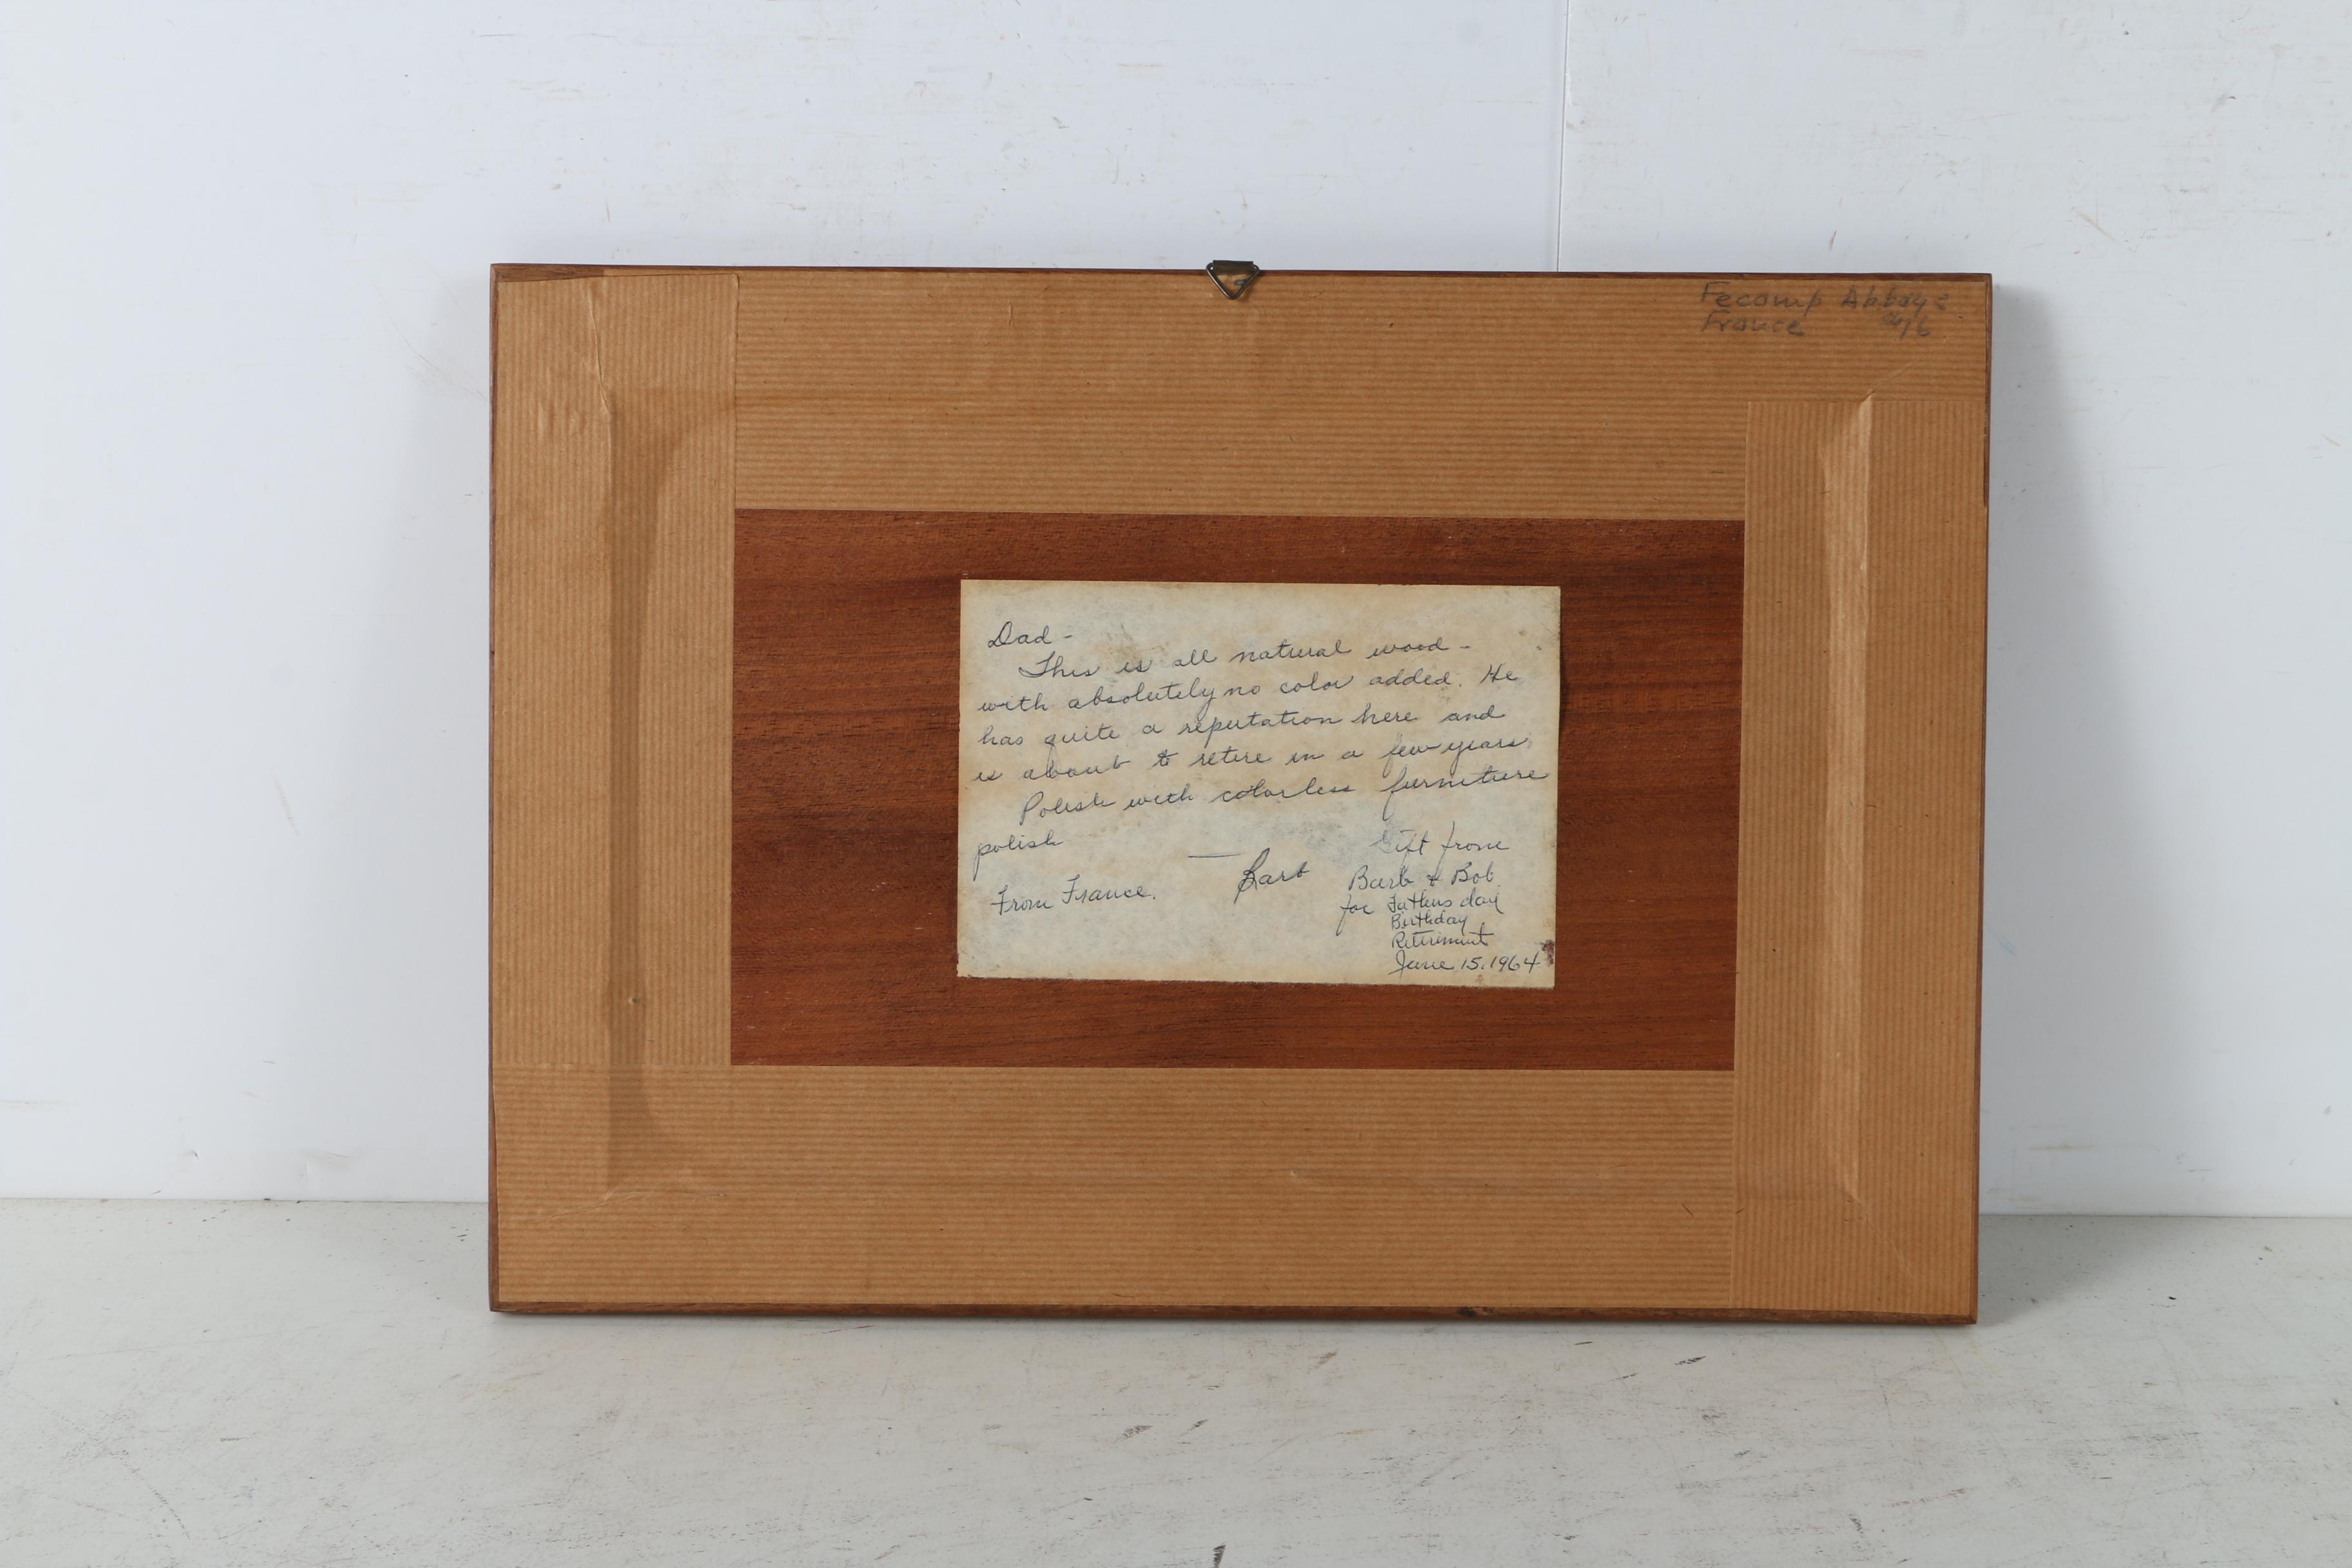 Fecamp Abbaye
France
Dad -
This is all natural wood -
with absolutely no color added. He
has quite a reputation here and
is about to retire in a few years.
Polish with colorless furniture
polish
— Barb
From France.
Gift from
Barb & Bob
for Fathers day
Birthday
Retirement
June 15, 1964